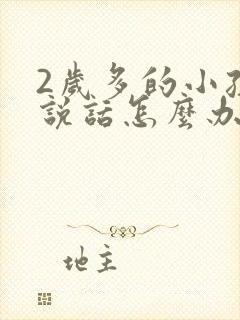 2歲多的小孩
說話怎麼办
地主